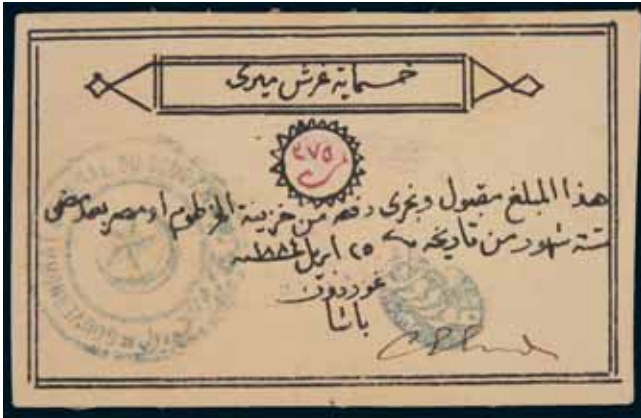 خمسماية غرش ميرى
نمرة
٤٧٥
هذا المبلغ مقبول ويجرى دفعه من خزينة الخرطوم او مصر بعد مضى
ستة شهور من تاريخه ٢٥ ابريل ١٨٨٤ سنه
غوردون
باشا